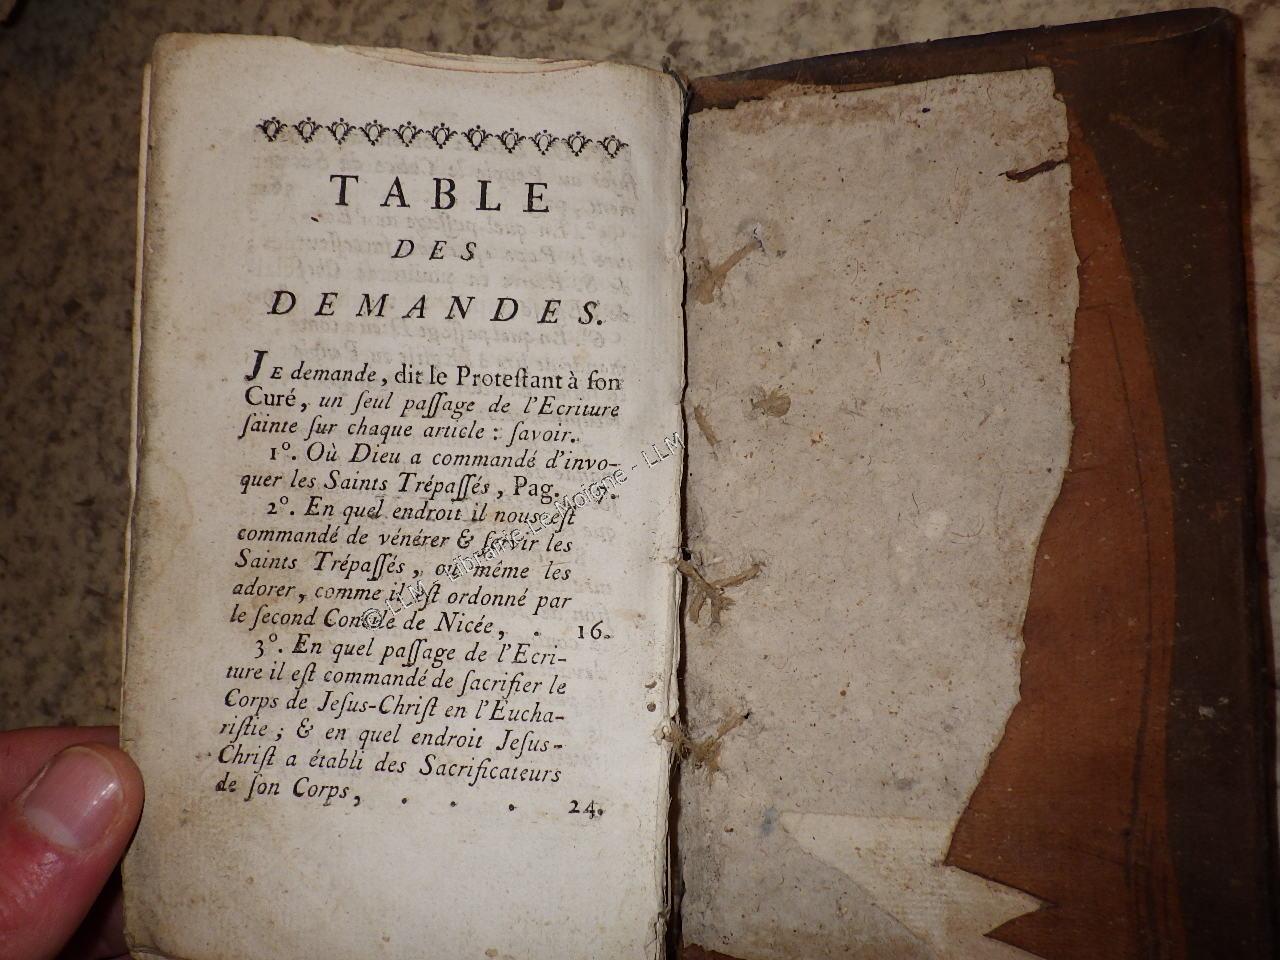 TABLE
DES
DEMANDES.
JE demande, dit le Proteſtant à ſon
Curé, un ſeul paſſage de l'Ecriture
ſainte ſur chaque article : ſavoir.
1°. Où Dieu a commandé d'invo-
quer les Saints Trépaſſés, Pag. 7.
2°. En quel endroit il nous eſt
commandé de vénérer & ſervir les
Saints Trépaſſés, ou même les
adorer, comme il eſt ordonné par
le ſecond Concile de Nicée, . 16.
3°. En quel paſſage de l'Ecri-
ture il eſt commandé de ſacrifier le
Corps de Jeſus-Chriſt en l'Eucha-
riſtie ; & en quel endroit Jeſus-
Chriſt a établi des Sacrificateurs
de ſon Corps, . . . 24.
© LLM - Librairie Le Moigne - LLM